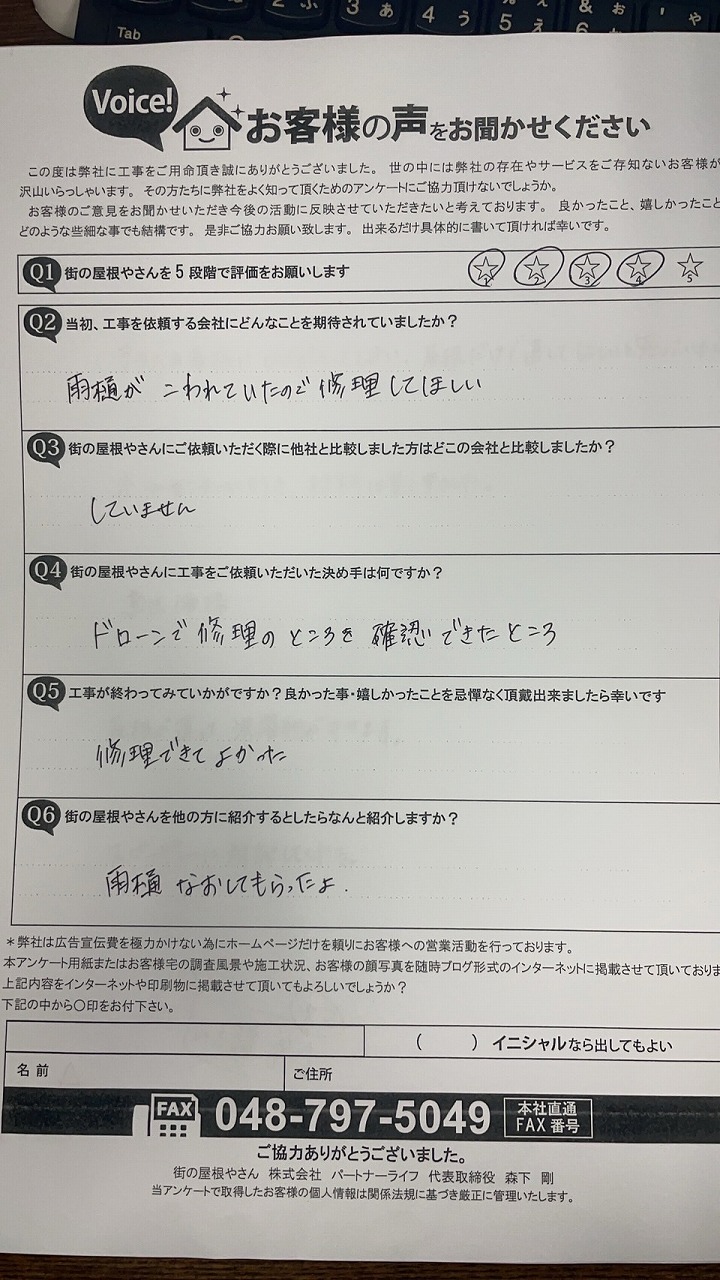 Tab
Voice!
お客様の声をお聞かせください
この度は弊社に工事をご用命頂き誠にありがとうございました。 世の中には弊社の存在やサービスをご存知ないお客様が
沢山いらっしゃいます。 その方たちに弊社をよく知って頂くためのアンケートにご協力頂けないでしょうか。
お客様のご意見をお聞かせいただき今後の活動に反映させていただきたいと考えております。 良かったこと、嬉しかったこと
どのような些細な事でも結構です。 是非ご協力お願い致します。 出来るだけ具体的に書いて頂ければ幸いです。
Q1 街の屋根やさんを5段階で評価をお願いします 1 2 3 4 5
Q2 当初、工事を依頼する会社にどんなことを期待されていましたか？
雨樋が こわれていたので修理してほしい
Q3 街の屋根やさんにご依頼いただく際に他社と比較しました方はどこの会社と比較しましたか？
していません
Q4 街の屋根やさんに工事をご依頼いただいた決め手は何ですか？
ドローンで修理のところを確認できたところ
Q5 工事が終わってみていかがですか？良かった事・嬉しかったことを忌憚なく頂戴出来ましたら幸いです
修理できてよかった
Q6 街の屋根やさんを他の方に紹介するとしたらなんと紹介しますか？
雨樋 なおしてもらったよ.
＊弊社は広告宣伝費を極力かけない為にホームページだけを頼りにお客様への営業活動を行っております。
本アンケート用紙またはお客様宅の調査風景や施工状況、お客様の顔写真を随時ブログ形式のインターネットに掲載させて頂いておりま
上記内容をインターネットや印刷物に掲載させて頂いてもよろしいでしょうか？
下記の中から〇印をお付下さい。
（ ）イニシャルなら出してもよい
名前 ご住所
FAX 048-797-5049 本社直通 FAX番号
ご協力ありがとうございました。
街の屋根やさん 株式会社 パートナーライフ 代表取締役 森下 剛
当アンケートで取得したお客様の個人情報は関係法規に基づき厳正に管理いたします。